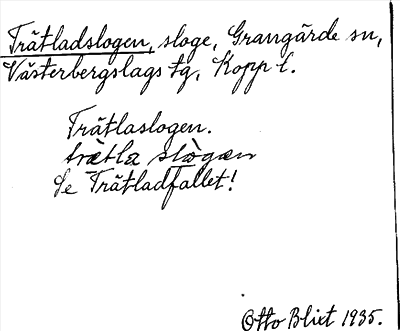 Trätladslogen, sloge, Grangärde sn,
Västerbergslags tg, Kopp l.
Trätlaslogen.
trètla slògæn
Se Trätladfallet!
Otto Blixt 1935.